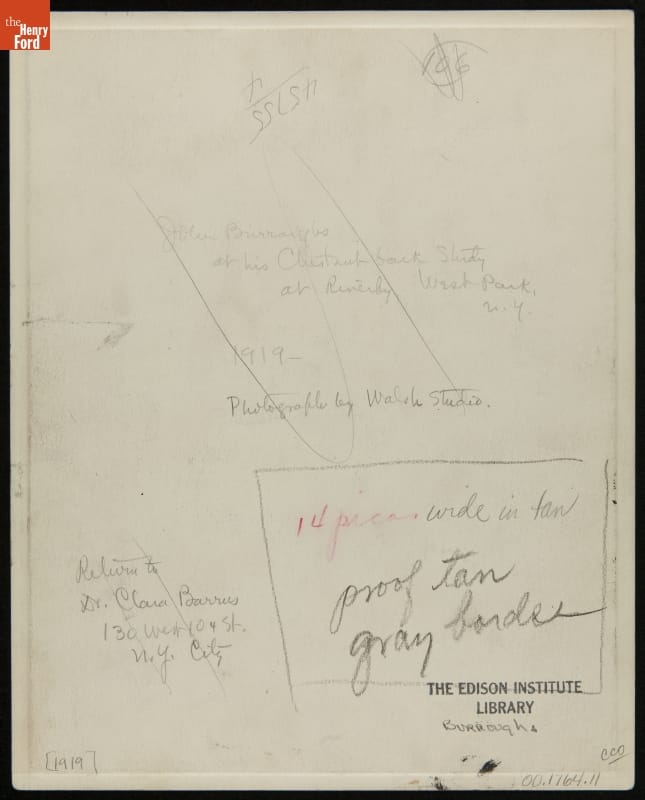 the
Henry
Ford
96
4
45755
John Burroughs
at his Chestnut bark Study
at Riverby West Park,
N.Y.
1919 -
Photograph by Walsh Studio.
14 picas wide in tan
proof tan
gray border
Return to
Dr. Clara Barrus
130 West 104 St.
N.Y. City
THE EDISON INSTITUTE
LIBRARY
BURROUGHS
[1919]
CCO
00.1764.11